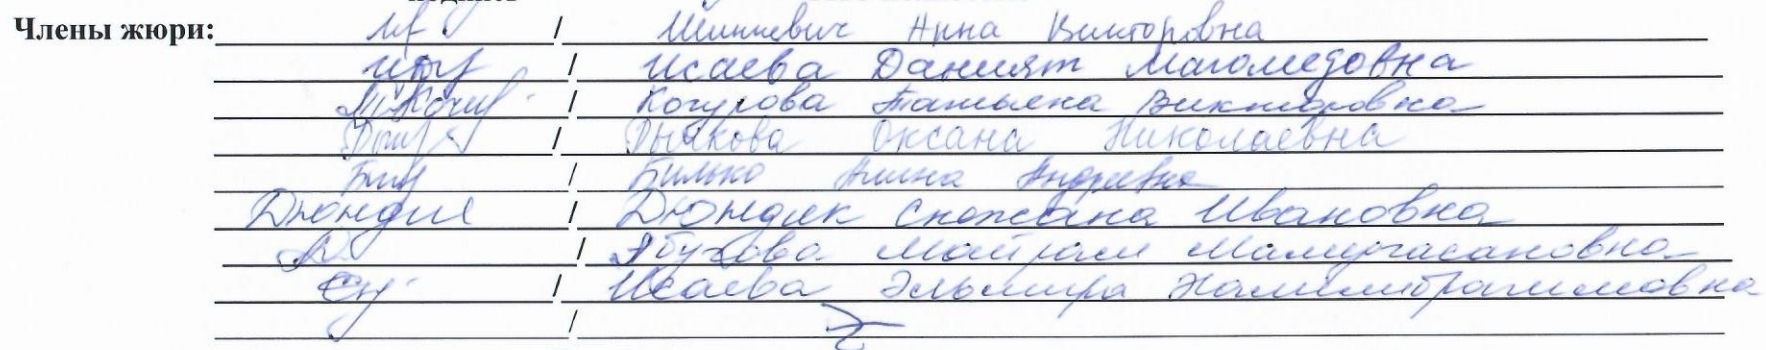 Члены жюри: / Шинкевич Анна Викторовна
/ Исаева Даният Магомедовна
/ Кочурова Татьяна Викторовна
/ Дьякова Оксана Николаевна
/ Билько Алина Андреевна
Дюндик / Дюндик Снежана Ивановна
/ Абугова
/ Исаева Эльмира